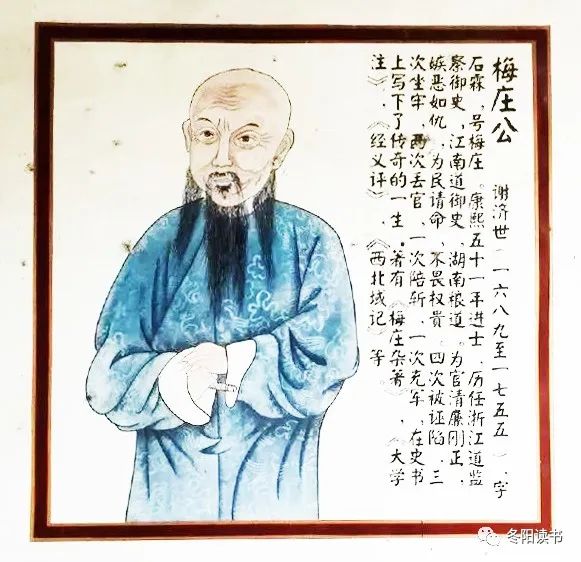 梅庄公
谢济世(一六八九至一七五五),字
石霖,号梅庄。康熙五十一年进士,历任浙江道监
察御史,江南道御史,湖南粮道。为官清廉刚正,
嫉恶如仇,为民请命,不畏权贵,四次被诬陷,三
次坐牢,两次丢官,一次陪斩,一次充军,在史书
上写下了传奇的一生。著有《梅庄杂著》,《大学
注》,《经义评》,《西北域记》等
冬阳读书